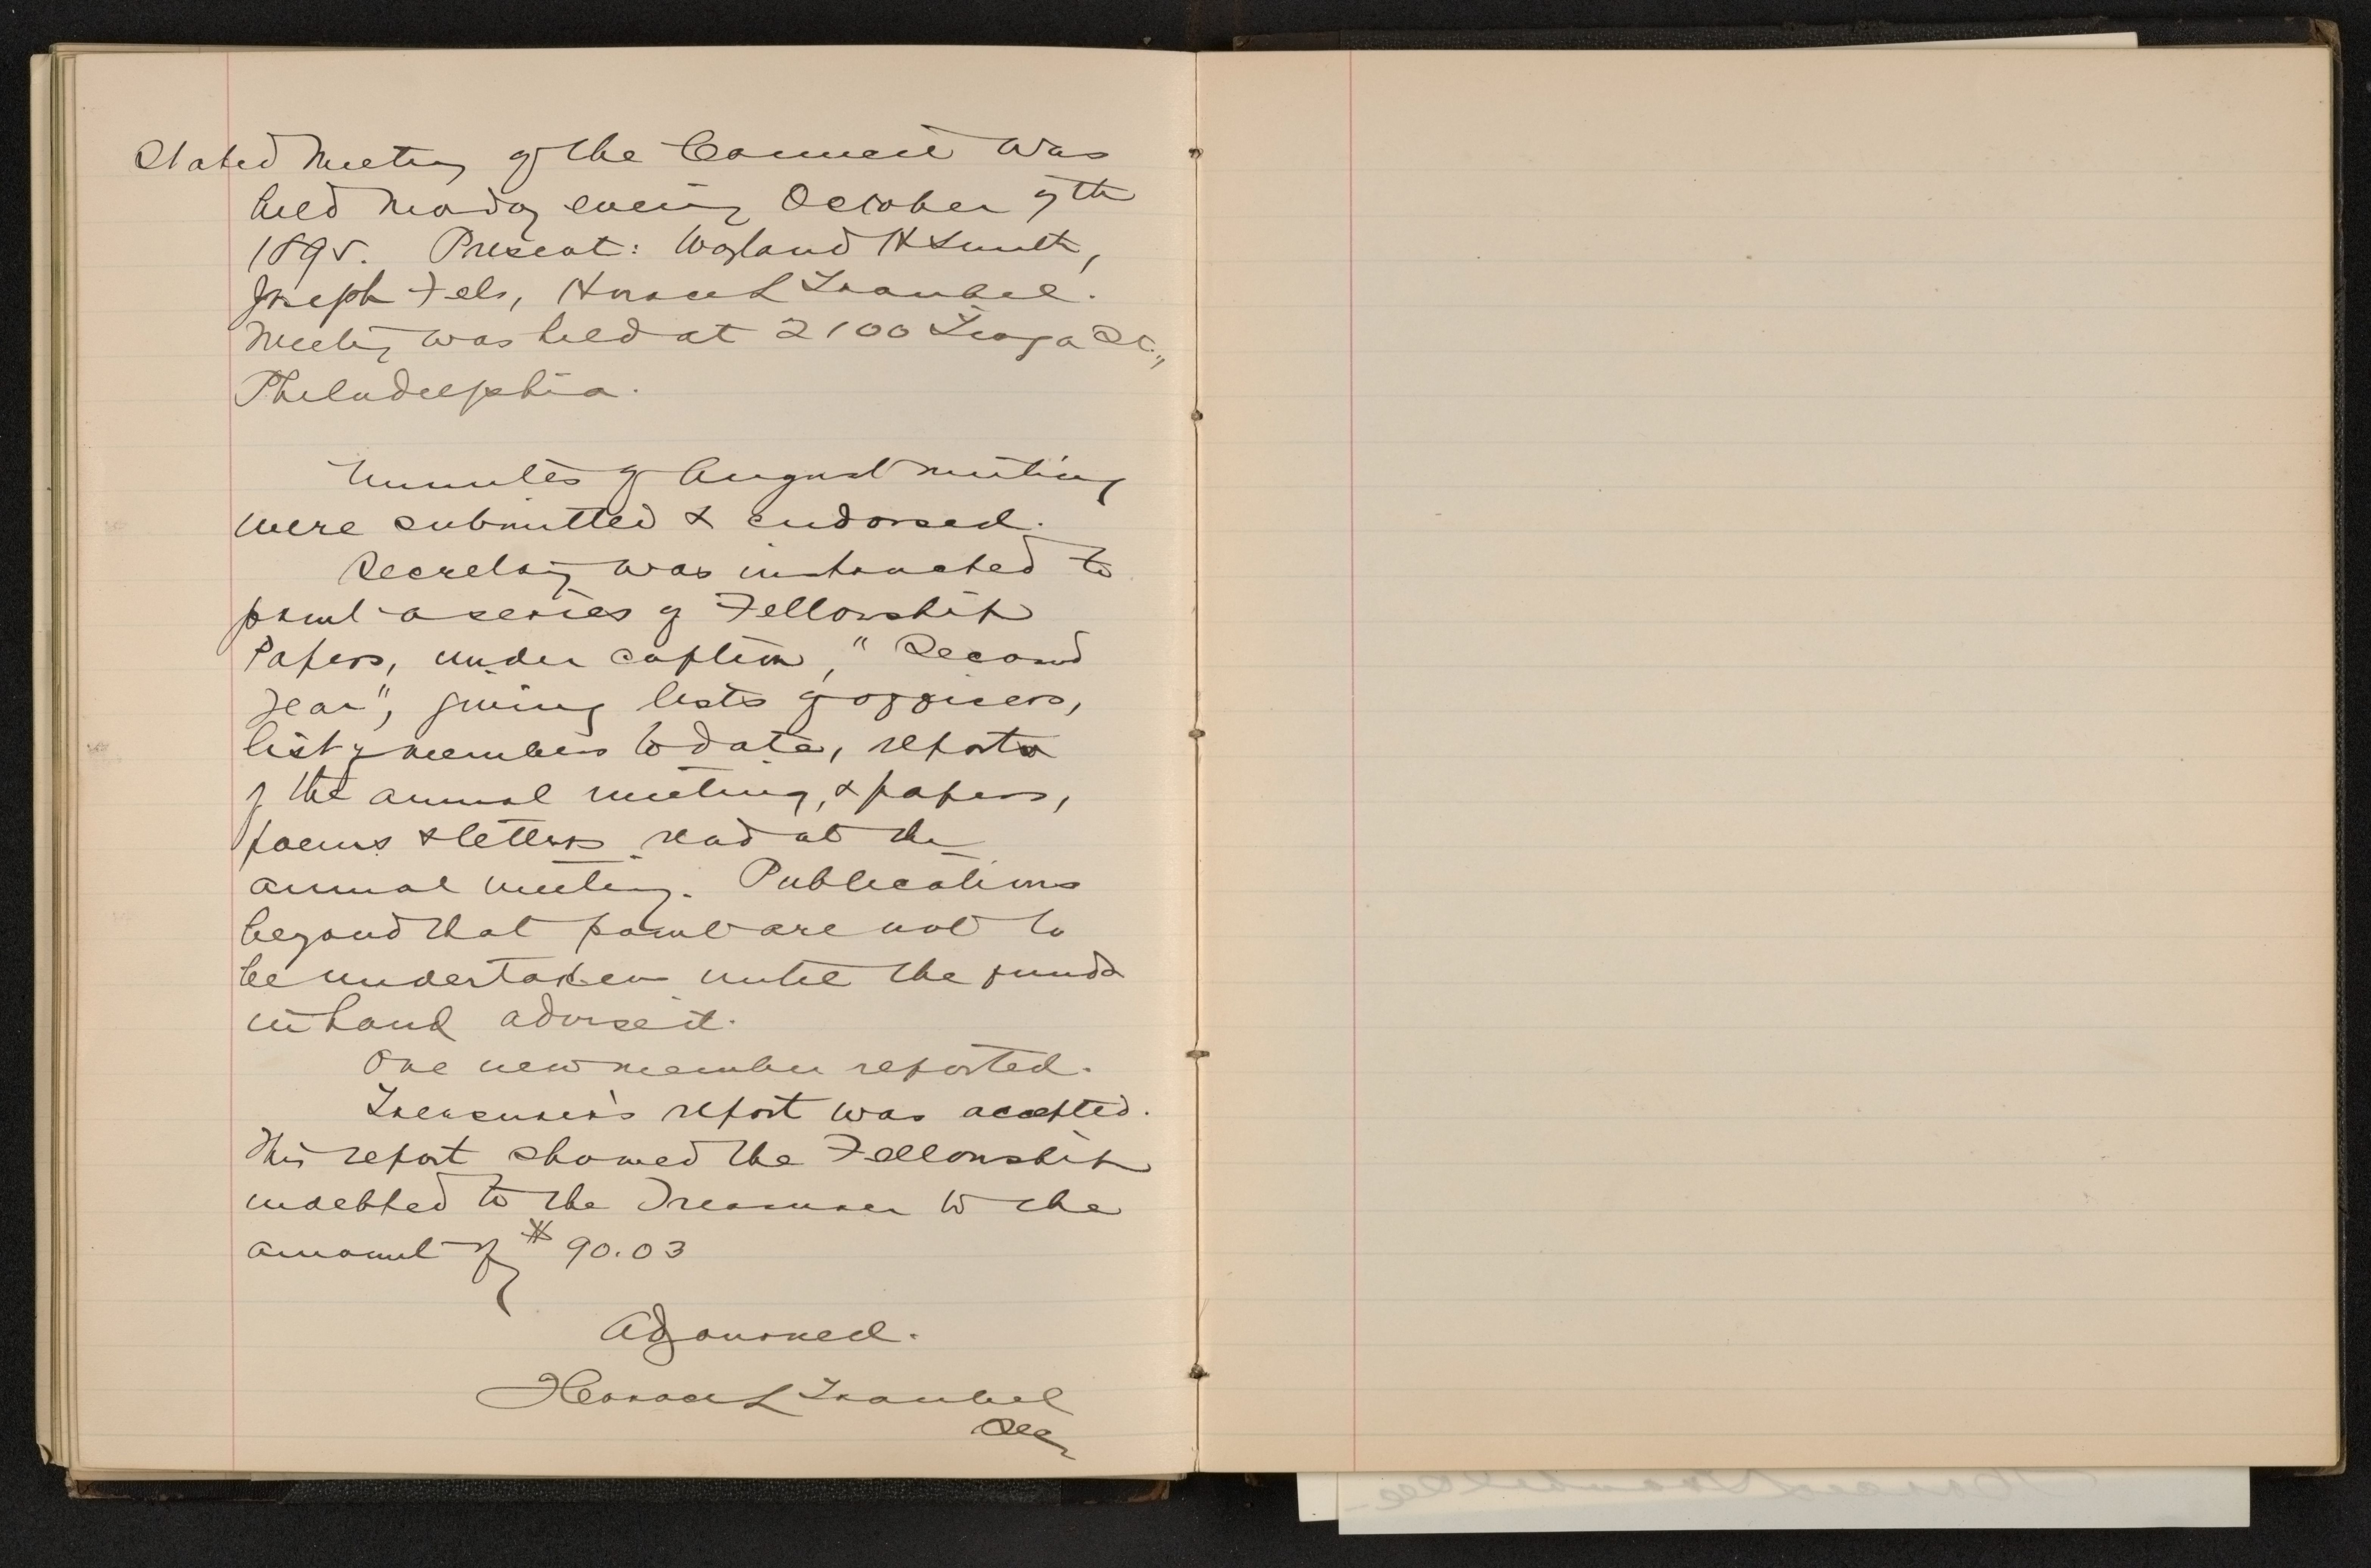 Stated Meeting of the Council was
held Monday evening October 7th
1895. Present: Wayland H Smith,
Joseph Fels, Horace L Traubel.
Meeting was held at 2100 Tioga St.,
Philadelphia.
Minutes of August meeting
were submitted & endorsed.
Secretary was instructed to
print a series of Fellowship
Papers, under caption, "Second
Year", giving lists of officers,
list of members to date, reports
of the annual meeting, & papers,
poems & letters read at the
annual meeting. Publications
beyond that point are not to
be undertaken until the funds
in hand advise it.
One new member reported.
Treasurer's report was accepted.
This report showed the Fellowship
indebted to the Treasurer to the
amount of $90.03
Adjourned.
Horace L Traubel
Secy